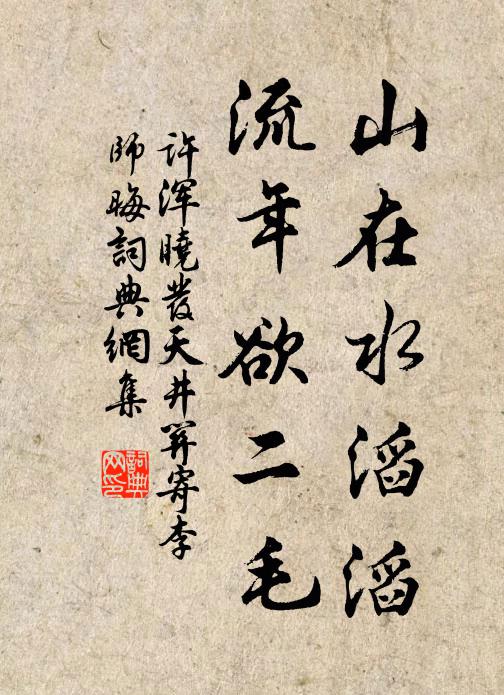 山在水滔滔
流年欲二毛
許渾曉發天井關寄李
師晦詞典網集
詞典
网印